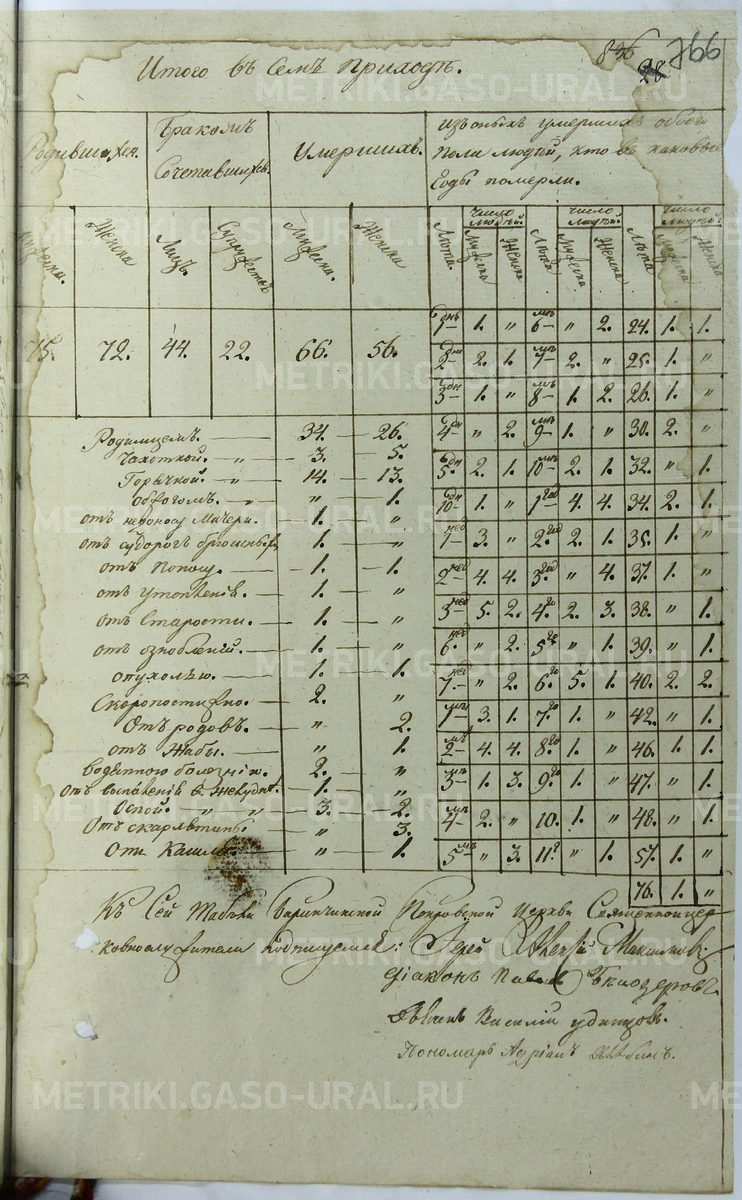 846
28
766
Итого въ семъ приходѣ.
Родившихся.
Бракомъ Сочетавшихся.
Умершихъ.
Изъ оныхъ умершихъ обоего
пола людей, кто въ каковые
годы померли.
Мужеска.
Женска
Лицъ.
Супружествъ
Мужеска.
Женска.
Лѣта.
Число людей.
Мужеска
Женска
Лѣта
Число людей.
Мужеска
Женска
Лѣта
Число людей.
Мужеска
Женска
75. 72. 44. 22. 66. 56.
1 дн 1. „ 6 мѣ „ 2. 24. 1. 1.
2 дн 2. 1. 7 мѣ 2. „ 25. 1. „
3 дн 1. „ 8 мѣ 1. 2. 26. 1. „
4 дн „ 2. 9 мѣ 1. „ 30. 2. „
5 дн 2. 1. 10 мѣ 2. 1. 32. „ 1.
10 дн 1. „ 1 год 4. 4. 34. 2. 1.
1 нед 3. „ 2 год 2. 1. 35. 1. „
2 нед 4. 4. 3 год „ 4. 37. 1. „
3 нед 5. 2. 4 го 2. 3. 38. „ 1.
6 нед „ 2. 5 го „ 1. 39. „ 1.
7 нед „ 2. 6 го 5. 1. 40. 2. 2.
1 мѣ 3. 1. 7 го 1. „ 42. „ 1.
2 мѣ 4. 4. 8 го 1. „ 46. 1. 1.
3 мѣ 1. 3. 9 го 1. „ 47. „ 1.
4 мѣ 2. „ 10. 1. „ 48. „ 1.
5 мѣ „ 3. 11 г „ 1. 57. 1. „
76. 1. „
Родимцемъ. 34. 26.
Чахоткой. „ 3. 5.
Горячкой. „ 14. 13.
обжогомъ. „ „ 1.
отъ неудоносу Матери. 1. „
отъ судорогъ 1. „
отъ Поносу. 1. 1.
отъ утопленія. 1. „
отъ Старости. 1. „
отъ ознобленій. 1. „
опухолью. 1. 1.
Скоропостижно. 2. „
Отъ родовъ. „ 2.
отъ Жабы. „ 1.
Водянною болезнію. 2. „
Отъ воспаленія в. Желудкѣ. 1. „
Оспой. „ „ 3. 2.
Отъ скарлатины. „ 3.
Отъ Кашля. „ 1.
Къ Сей Табели Баранчинской Покровской Церкви Священноцер
ковнослужители Подписуемся: Іерей Максимовъ.
Діаконъ Павелъ
Василій Удинцовъ.
Пономарь Адріанъ
METRIKI.GASO-URAL.RU